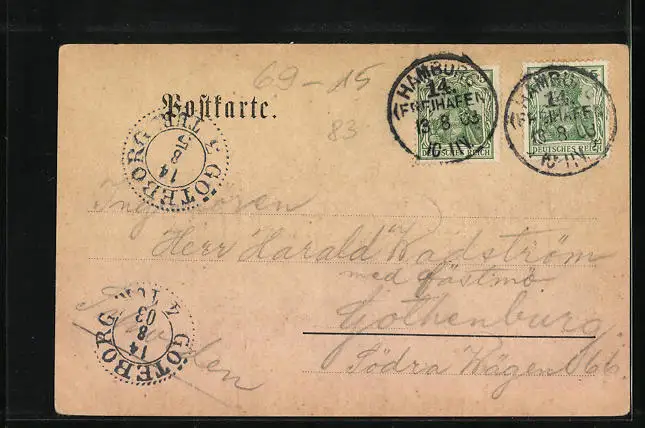 69-15
Postkarte.
83
HAMBURG
14.
(FREIHAFEN)
13.8.03
10-11V.
DEUTSCHES REICH
HAMBURG
14.
(FREIHAFEN)
13.8.03
10-11V.
5
DEUTSCHES REICH
GÖTEBORG
14
8
GÖTEBORG
14
8
03
Herr Harald Wadström
med
Gothenburg.
Södra Vägen 66.
Sweden